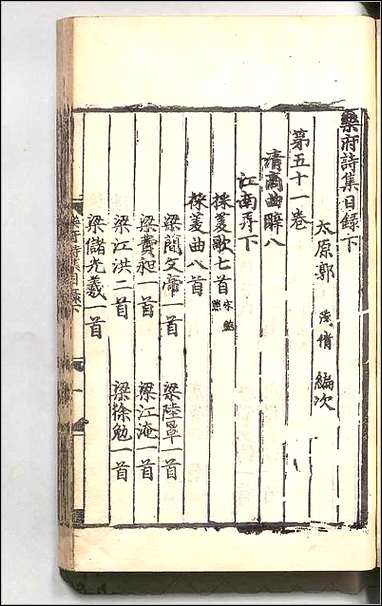 樂府詩集目録下
太原郭 茂倩 編次
第五十一卷
清商曲辭八
江南弄下
採菱歌七首
採菱曲八首
梁簡文帝一首 梁陸罩一首
梁費昶一首 梁江淹一首
梁江洪二首 梁徐勉一首
梁儲光羲一首